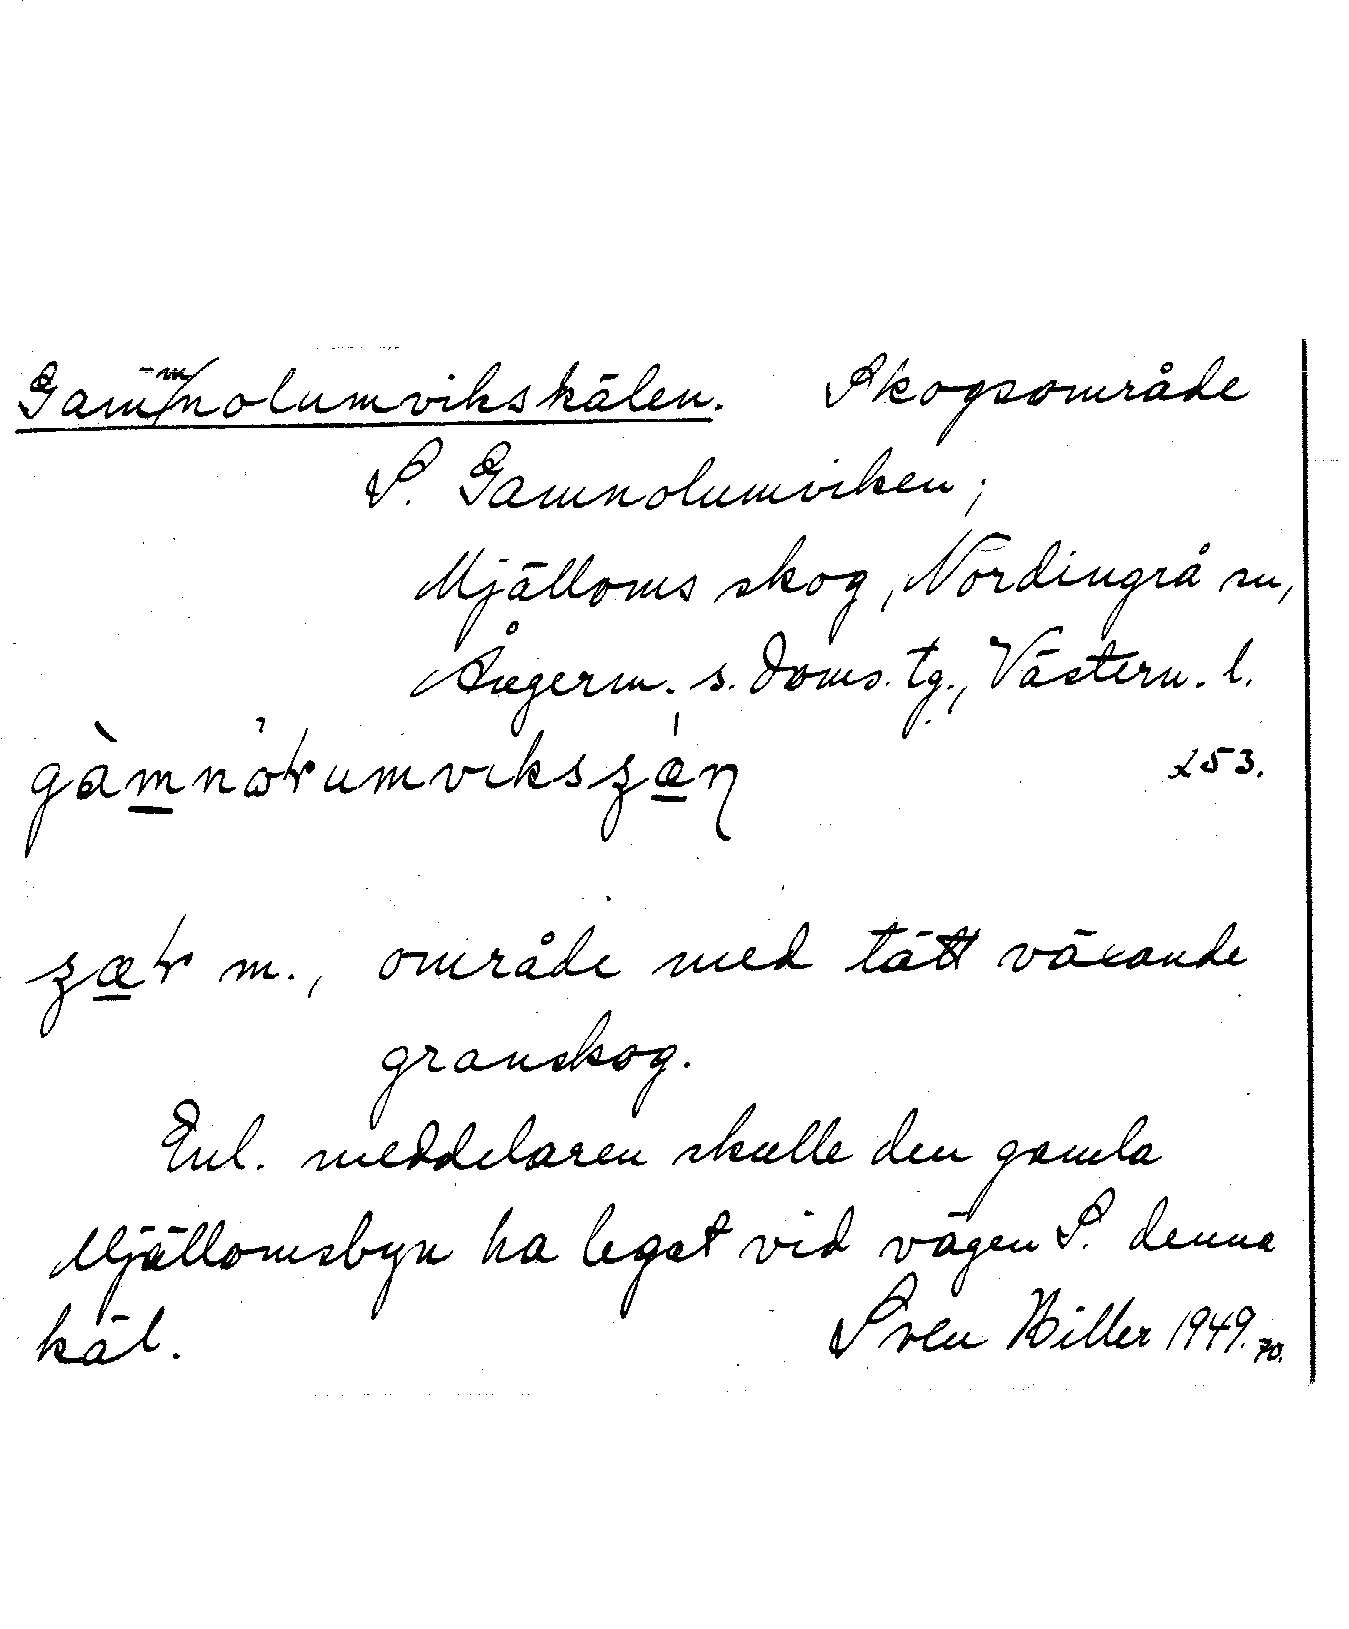 Gammnolumvikskälen. Skogsområde
S. Gamnolumviken;
Mjälloms skog, Nordingrå sn,
Ångerm. s. doms. tg., Västern. l.
x53.
m., område med tätt växande
granskog.
Enl. meddelaren skulle den gamla
Mjällomsbyn ha legat vid vägen S. denna
käl. Sven Biller 1949. 70.